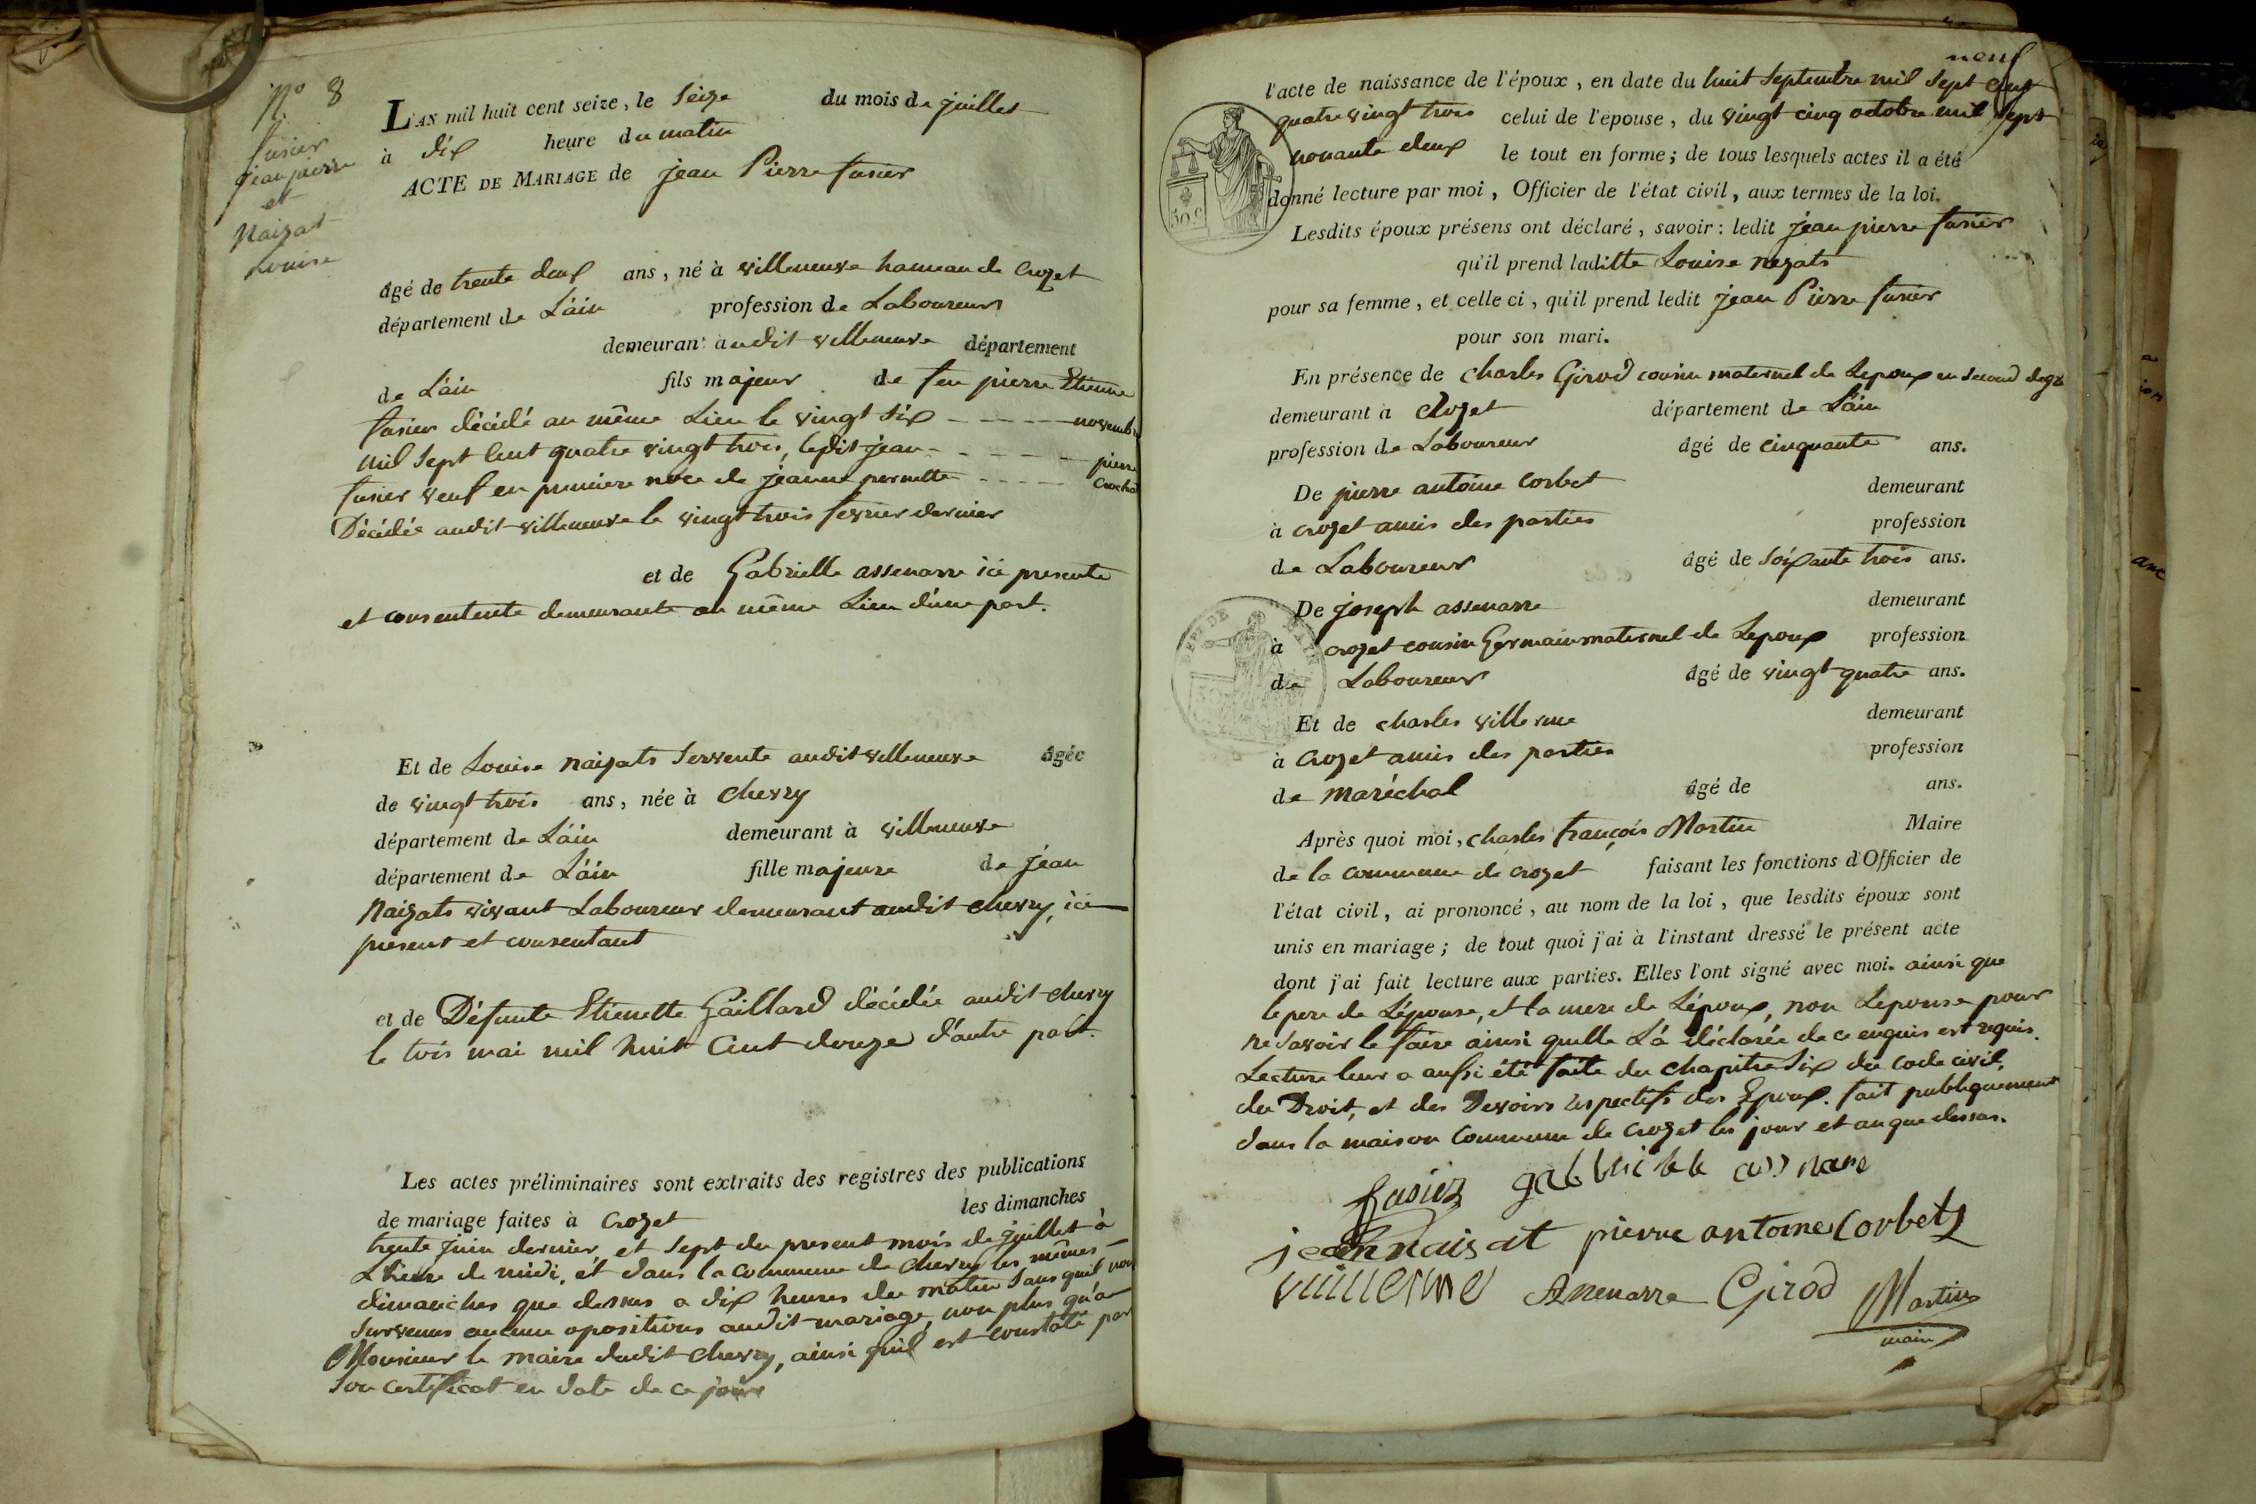 N° 8
fusier
jean pierre
et
Naizat
Louise
L'AN mil huit cent seize, le Seize du mois de juillet
à dix heure du matin
ACTE DE MARIAGE de jean Pierre fusier
âgé de trente deux ans, né à villeneuve hameau de Crozet
département de L'ain profession de Laboureur
demeurant audit villeneuve département
de L'ain fils majeur de feu pierre Etienne
fusier décédé au même Lieu le vingt six - - - - - novembre
mil Sept Cent quatre vingt trois, ledit jean - - - - - - pierre
fusier veuf en premiere noce de jeanne pernette - - - - -
Décédée audit villeneuve le vingt trois fevrier dernier
et de Gabrielle assenarre ici presente
et consentente demeurante au même Lieu d'une part.
Et de Louise Naizats Servente audit villeneuve âgée
de vingt trois ans, née à chevry
département de L'ain demeurant à villeneuve
département de L'ain fille majeure de jean
Naizats vivant Laboureur demeurant audit chevry, ici
present et consentant
et de Défunte Etienette Gaillard décédée audit chevry
le trois mai mil huit Cent douze d'autre part.
Les actes préliminaires sont extraits des registres des publications
de mariage faites à Crozet les dimanches
trente juin dernier, et Sept du present mois de juillet à
L'heure de midi, et dans la commune de Chevry les mêmes
dimanches que dessus a dix heures du matin Sans quil soit
Survenus aucune opositions audit mariage, non plus qu'a
Monsieur le maire dudit chevry, ainsi quil est constaté par
Son Certificat en date de ce jour
neuf
l'acte de naissance de l'époux, en date du huit Septembre mil Sept Cent
quatre vingt trois celui de l'epouse, du vingt cinq octobre mil Sept
nonante deux le tout en forme; de tous lesquels actes il a été
donné lecture par moi, Officier de l'état civil, aux termes de la loi.
50 c
Lesdits époux présens ont déclaré, savoir: ledit jean pierre fusier
qu'il prend laditte Louise nezats
pour sa femme, et celle ci, qu'il prend ledit jean Pierre fusier
pour son mari.
En présence de Charles Girod cousin maternel de Lepoux en second degré
demeurant à Crozet département de L'ain
profession de Laboureur âgé de cinquante ans.
De pierre antoine Corbet demeurant
à crozet amis des parties profession
de Laboureur âgé de Soixante trois ans.
DEPT DE L'AIN
De joseph assenarre demeurant
à crozet cousin Germain maternel de Lepoux profession
de Laboureur âgé de vingt quatre ans.
Et de charles demeurant
à Crozet amis des parties profession
de maréchal âgé de ans.
Après quoi moi, charles françois Martin Maire
de la commune de crozet faisant les fonctions d'Officier de
l'état civil, ai prononcé, au nom de la loi, que lesdits époux sont
unis en mariage; de tout quoi j'ai à l'instant dressé le présent acte
dont j'ai fait lecture aux parties. Elles l'ont signé avec moi. ainsi que
le pere de Lépouse, et la mere de Lépoux, non Lepouse pour
ne Savoir le faire ainsi quelle L'a déclarée de ce enquis est requis.
Lecture leur a aussi été faite du chapitre Six du code civil,
du Droit, et des Devoirs respectifs des Epoux. fait publiquement
dans la maison Commune de Crozet les jour et an que dessus.
fusier gabrielle assnare
jean naisat pierre antoine Corbet
vuillerme Assenarre Girod Martin
maire